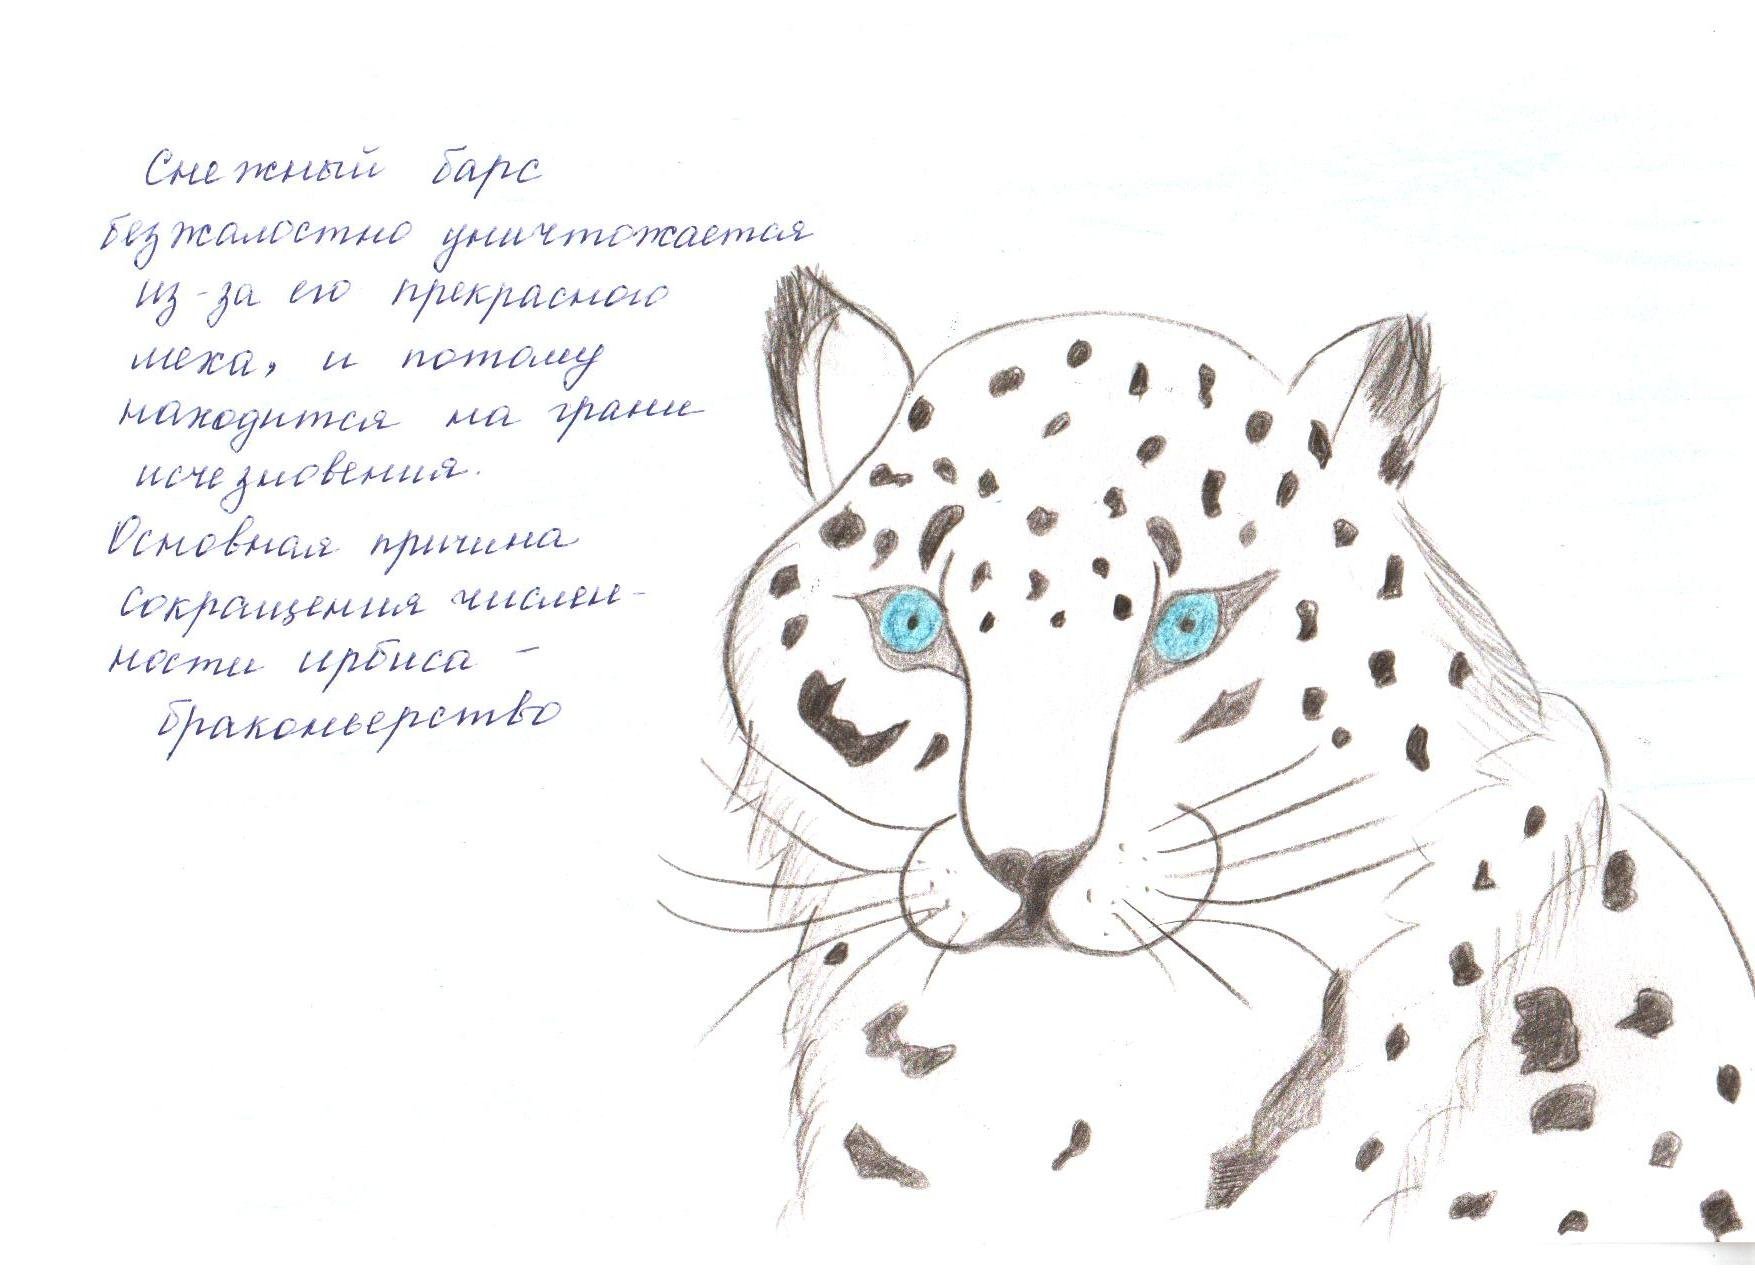 Снежный барс
безжалостно уничтожается
из-за его прекрасного
меха, и потому
находится на грани
исчезновения.
Основная причина
сокращения числен-
ности ирбиса –
браконьерство